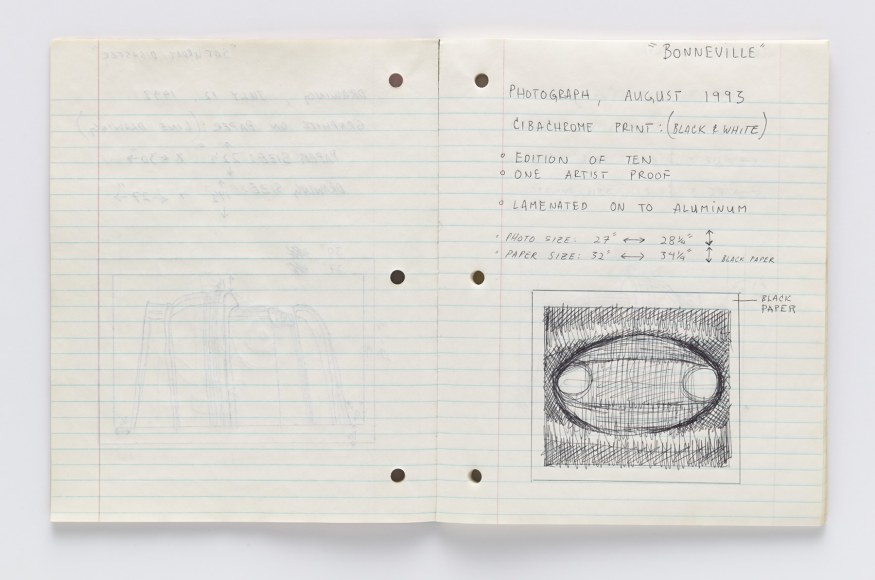 "BONNEVILLE"
PHOTOGRAPH, AUGUST 1993
CIBACHROME PRINT: (BLACK & WHITE)
° EDITION OF TEN
° ONE ARTIST PROOF
° LAMENATED ON TO ALUMINUM
· PHOTO SIZE: 27" ↔ 28¼" ↕
· PAPER SIZE: 32" ↔ 34¼" ↕ BLACK PAPER
BLACK
PAPER